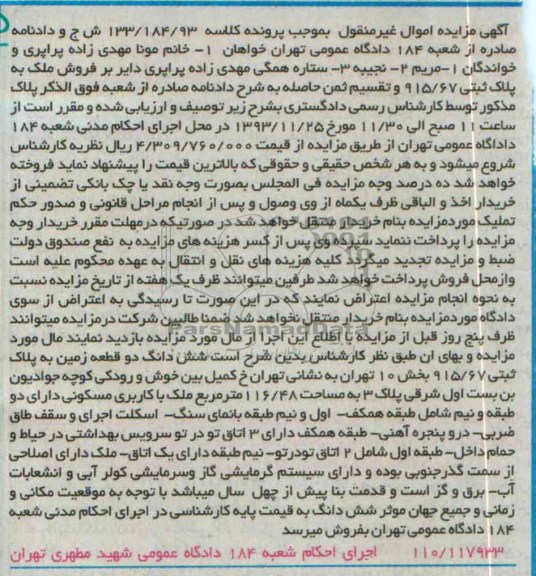 آگهی مزایده اموال غیرمنقول  بموجب پرونده کلاسه  ۱۳۳/۱۸۴/۹۳  ش ج و دادنامه
صادره از شعبه ۱۸۴ دادگاه عمومی تهران خواهان  ۱- خانم مونا مهدی زاده پراپری و
خواندگان ۱-مریم ۲- نجیبه ۳- ستاره همگی مهدی زاده پراپری دایر بر فروش ملک به
پلاک ثبتی ۹۱۵/۶۷ و تقسیم ثمن حاصله به شرح دادنامه صادره از شعبه فوق الذکر پلاک
مذکور توسط کارشناس رسمی دادگستری بشرح زیر توصیف و ارزیابی شده و مقرر است از
ساعت ۱۱ صبح الی ۱۱/۳۰ مورخ ۱۳۹۳/۱۱/۲۵ در محل اجرای احکام مدنی شعبه ۱۸۴
داداگاه عمومی تهران از طریق مزایده از قیمت ۴/۳۰۹/۷۶۰/۰۰۰ ریال نظریه کارشناس
شروع میشود و به هر شخص حقیقی و حقوقی که بالاترین قیمت را پیشنهاد نماید فروخته
خواهد شد ده درصد وجه مزایده فی المجلس بصورت وجه نقد یا چک بانکی تضمینی از
خریدار اخذ و الباقی ظرف یکماه از وی وصول و پس از انجام مراحل قانونی و صدور حکم
تملیک موردمزایده بنام خریدار منتقل خواهد شد در صورتیکه درمهلت مقرر خریدار وجه
مزایده را پرداخت ننماید سپرده وی پس از کسر هزینه های مزایده به  نفع صندوق دولت
ضبط و مزایده تجدید میگردد کلیه هزینه های نقل و انتقال به عهده محکوم علیه است
وازمحل فروش پرداخت خواهد شد طرفین میتوانند ظرف یک هفته از تاریخ مزایده نسبت
به نحوه انجام مزایده اعتراض نمایند که در این صورت تا رسیدگی به اعتراض از سوی
دادگاه موردمزایده بنام خریدار منتقل نخواهد شد ضمنا طالبین شرکت درمزایده میتوانند
ظرف پنج روز قبل از مزایده با اطلاع این اجرا از مال مورد مزایده بازدید نمایند مال مورد
مزایده و بهای ان طبق نظر کارشناس بدین شرح است شش دانگ دو قطعه زمین به پلاک
ثبتی ۹۱۵/۶۷ بخش ۱۰ تهران به نشانی تهران خ کمیل بین خوش و رودکی کوچه جوادیون
بن بست اول شرقی پلاک ۳ به مساحت ۱۱۶/۴۸ مترمربع ملک با کاربری مسکونی دارای دو
طبقه و نیم شامل طبقه همکف-  اول و نیم طبقه بانمای سنگ-  اسکلت اجرای و سقف طاق
ضربی- درو پنجره آهنی- طبقه همکف دارای ۳ اتاق تو در تو سرویس بهداشتی در حیاط و
حمام داخل- طبقه اول شامل ۲ اتاق تودرتو- نیم طبقه دارای یک اتاق- ملک دارای اصلاحی
از سمت گذرجنوبی بوده و دارای سیستم گرمایشی گاز وسرمایشی کولر آبی و انشعابات
آب- برق و گز است و قدمت بنا پیش از چهل  سال میباشد با توجه به موقعیت مکانی و
زمانی و جمیع جهان موثر شش دانگ به قیمت پایه کارشناسی در اجرای احکام مدنی شعبه
۱۸۴ دادگاه عمومی تهران بفروش میرسد
۱۱۰/۱۱۷۹۳۳     اجرای احکام شعبه ۱۸۴ دادگاه عمومی شهید مطهری تهران
ParsNamadData